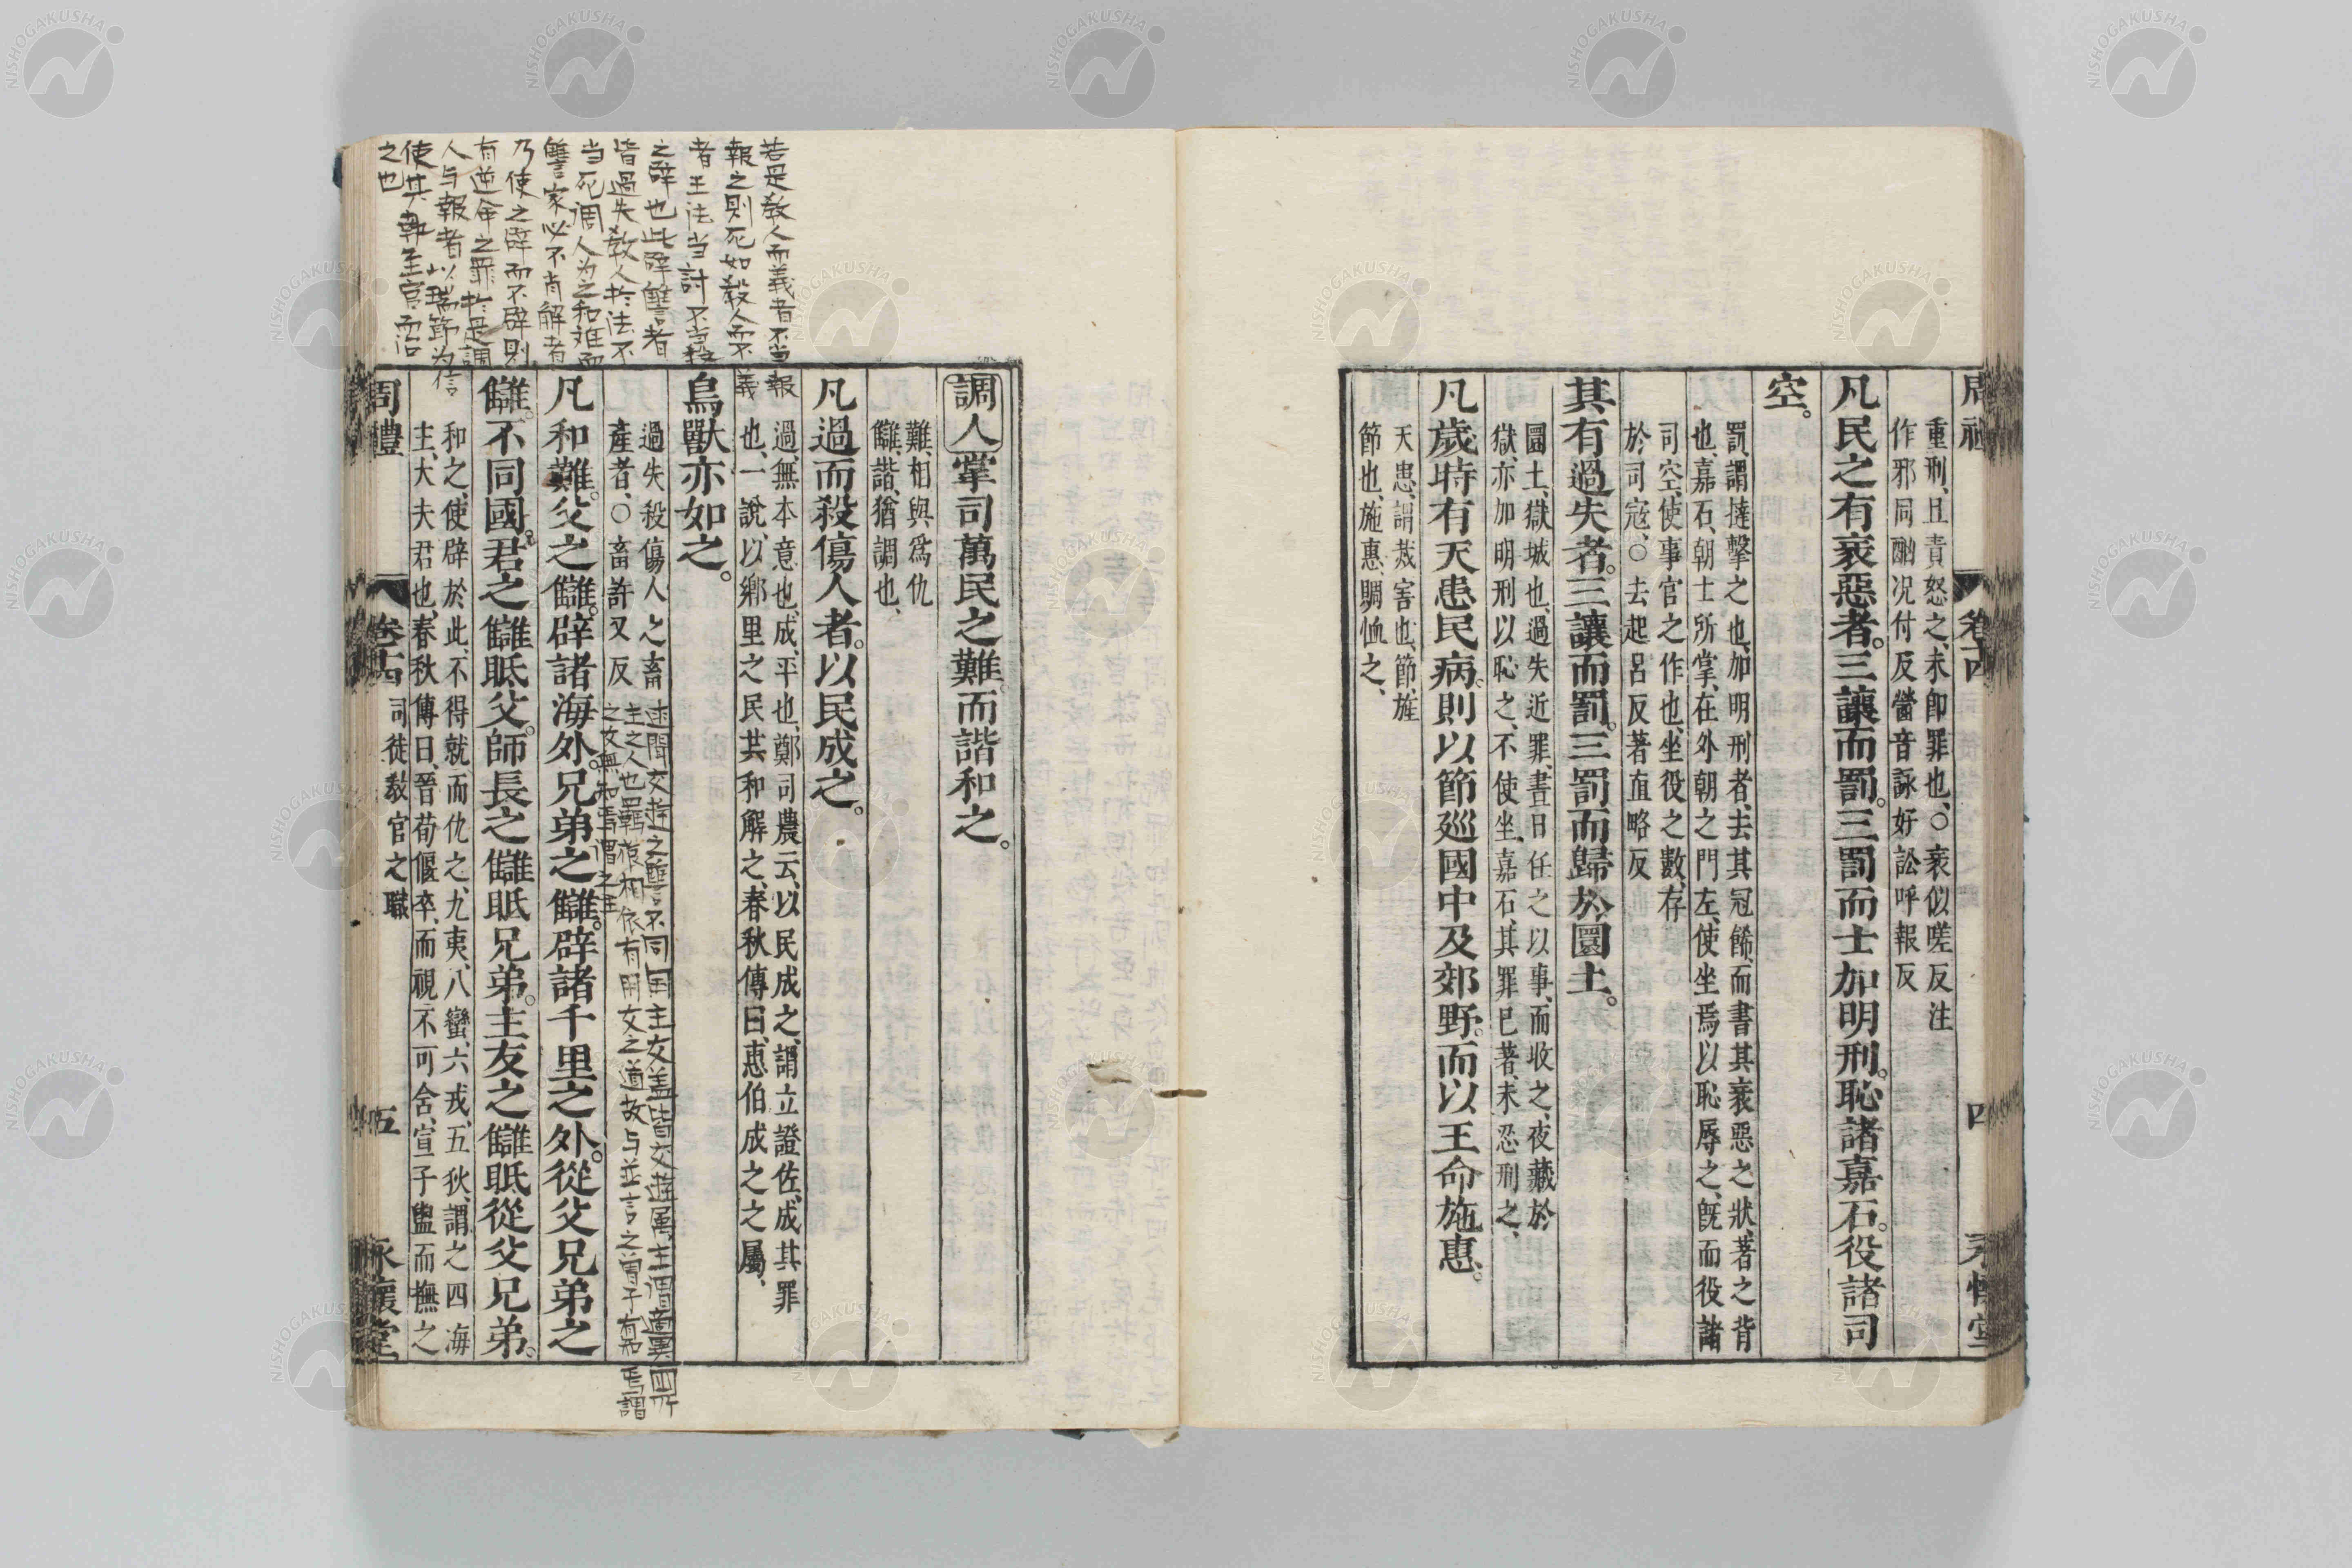 重刑、且責怒之、未卽罪也、○衺似嗟反注
作邪同酗况付反醟音詠好訟呼報反
凡民之有衺惡者。三讓而罰。三罰而士加明刑。恥諸嘉石。役諸司
空。
罰、謂撻擊之也、加明刑者、去其冠飾、而書其衺惡之狀、著之背
也、嘉石、朝士所掌、在外朝之門左、使坐焉以恥辱之、旣而役諸
司空、使事官之作也、坐役之數、存
於司寇、○去起呂反著直略反
其有過失者。三讓而罰。三罰而歸於圜土。
圜土、獄城也、過失近罪、晝日任之以事、而收之、夜藏於
獄、亦加明刑以恥之、不使坐、嘉石、其罪已著、未忍刑之、
凡歲時有天患民病。則以節廵國中及郊野。而以王命施惠。
天患、謂烖害也、節、旌
節也、施惠、賙恤之、
卷十四
四
調人掌司萬民之難。而諧和之。
難、相與爲仇
讎、諧、猶調也、
凡過而殺傷人者。以民成之。
過、無本意也、成、平也、鄭司農云、以民成之、謂立證佐、成其罪
也、一說、以鄉里之民共和解之、春秋傳曰、惠伯成之之屬、
鳥獸亦如之。
過失殺傷人之畜
產者、○畜許又反
凡和難。父之讎。辟諸海外。兄弟之讎。辟諸千里之外。從父兄弟之
讎。不同國。君之讎眡父。師長之讎眡兄弟。主友之讎眡從父兄弟。
和之、使辟於此、不得就而仇之、九夷、八蠻、六戎、五狄、謂之四海
主、大夫君也、春秋傳曰、晉荀偃卒、而視不可含、宣子盥而撫之
周禮
卷十四
司徒敎官之職
五
永懷堂
若是殺人而義者不当報
報之則死如殺人而不義
者王法当討不当殺
之辟也此辟讐者
皆過失殺人於法不
当死调人为之和难而
讐家必不肯解者
乃使之辟而不辟則
有逆命之罪於是調
人与報者以瑞節为信
使其執至官而治
之也